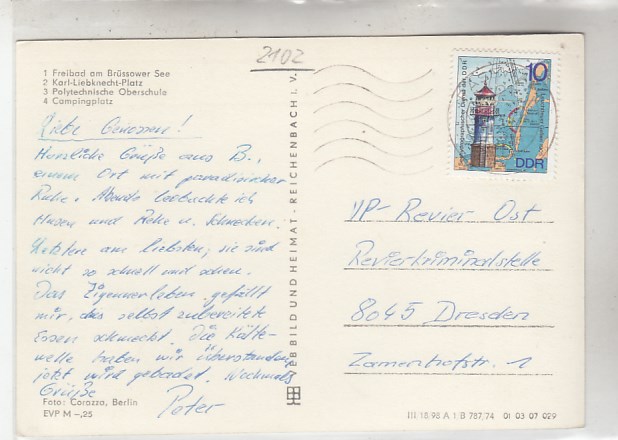 2102
1 Freibad am Brüssower See
2 Karl-Liebknecht-Platz
3 Polytechnische Oberschule
4 Campingplatz
Liebe Genossen!
Herzliche Grüße aus B.,
einem Ort mit paradiesischer
Ruhe. Abends beobachte ich
Hasen und Rehe u. Schnecken.
Letztere am liebsten, sie sind
nicht so schnell und scheu.
Das Zigeunerleben gefällt
mir, das selbst zubereitete
Essen schmeckt. Die Kälte-
welle haben wir überstanden,
jetzt wird gebadet. Nochmals
Grüße
Peter
Foto: Corazza, Berlin
EVP M –,25
BILD UND HEIMAT · REICHENBACH I. V.
10
DDR
VP-Revier Ost
Revierkriminalstelle
8045 Dresden
Zamenhofstr. 1
III 18 98 A 1/B 787/74 01 03 07 029